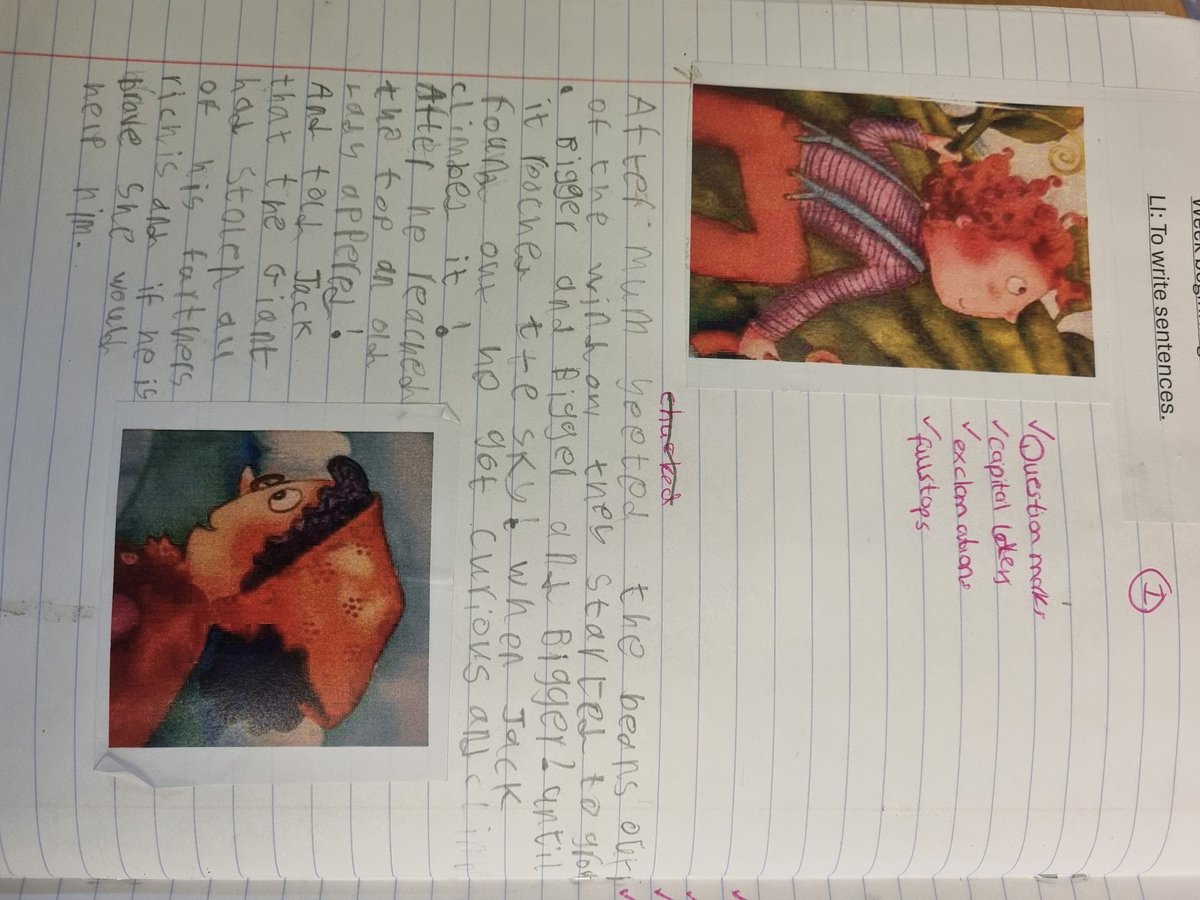 LI: To write sentences.
I
✓Question marks
✓capital letters
✓exclamations
✓fullstops
chucked
After mum yeeted the beans out
of the windon they started to grow
. Bigger and Bigger and Bigger? until
it roached the sky! when Jack
found out he got curious and
climbes it!
After he reached
the top an old
lady appered!
And told Jack
that the Giant
had stolen all
of his farthers
richis and if he is
brave she would
help him.